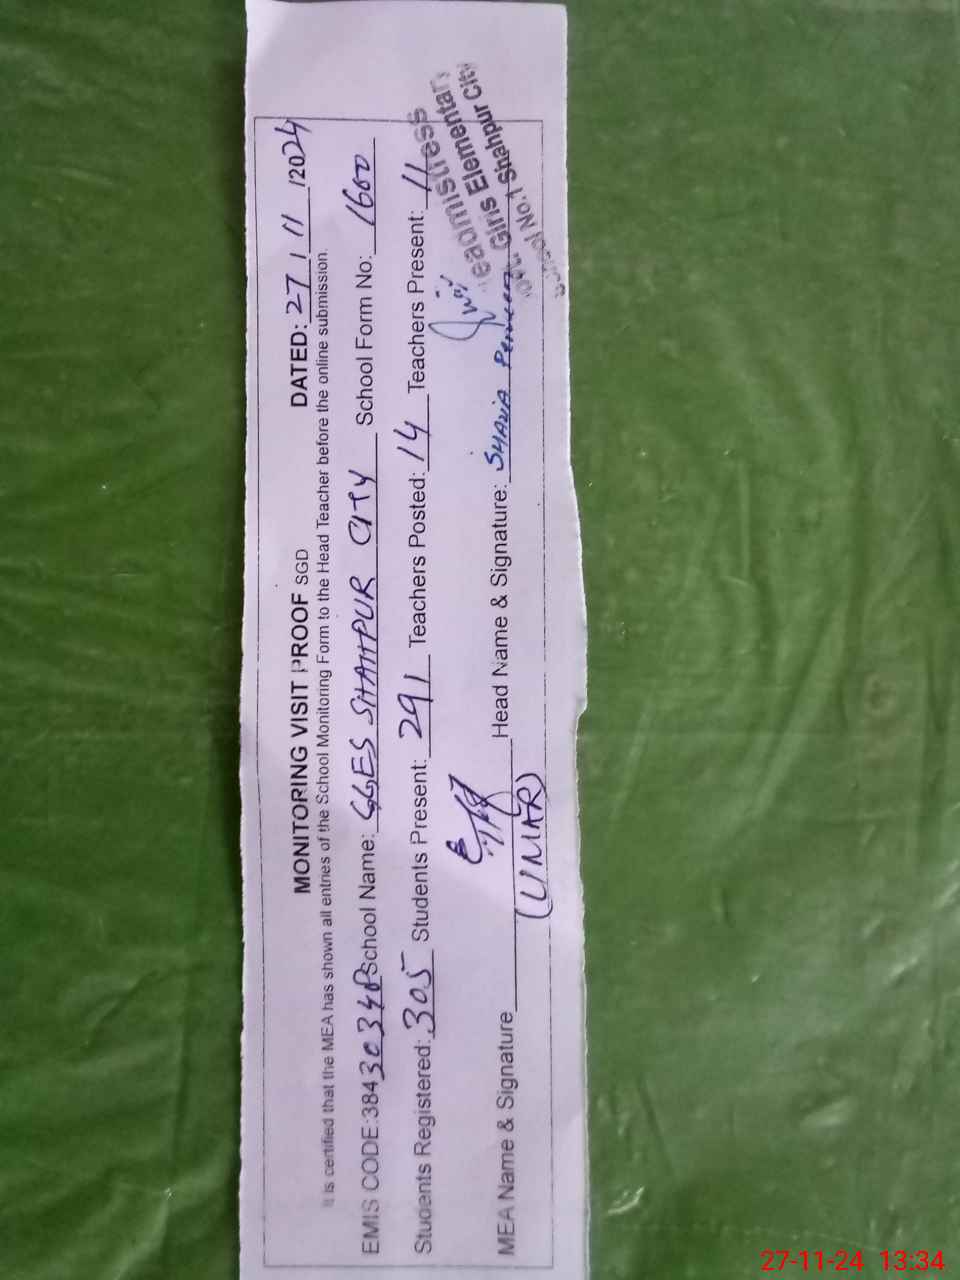 MONITORING VISIT PROOF SGD DATED: 27 / 11 /2024
It is certified that the MEA has shown all entries of the School Monitoring Form to the Head Teacher before the online submission.
EMIS CODE:38430348 School Name: GGES SHAHPUR CITY School Form No: 1600
Students Registered: 305 Students Present: 291 Teachers Posted: 14 Teachers Present: 11
MEA Name & Signature Head Name & Signature: SHAZIA Perveen
(UMAR)
Headmistress
Govt. Girls Elementary
School No.1 Shahpur City
27-11-24 13:34